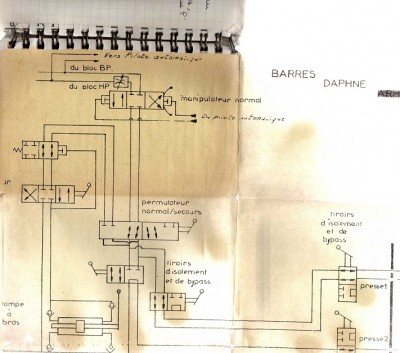 Vers Pilote automatique
du bloc BP
du bloc HP
manipulateur normal
Du pilote automatique
BARRES DAPHNE
permutateur
normal/secours
tiroirs
d'isolement
et de bypass
tiroirs
d'isolement
et de
bypass
presse1
presse2
à
bras